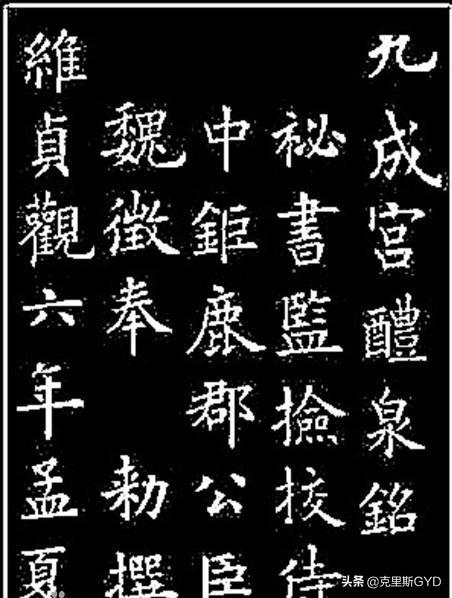 九成宮醴泉銘
祕書監撿挍侍
中鉅鹿郡公臣
魏徵奉 勑撰
維貞觀六年孟夏
头条 @克里斯GYD